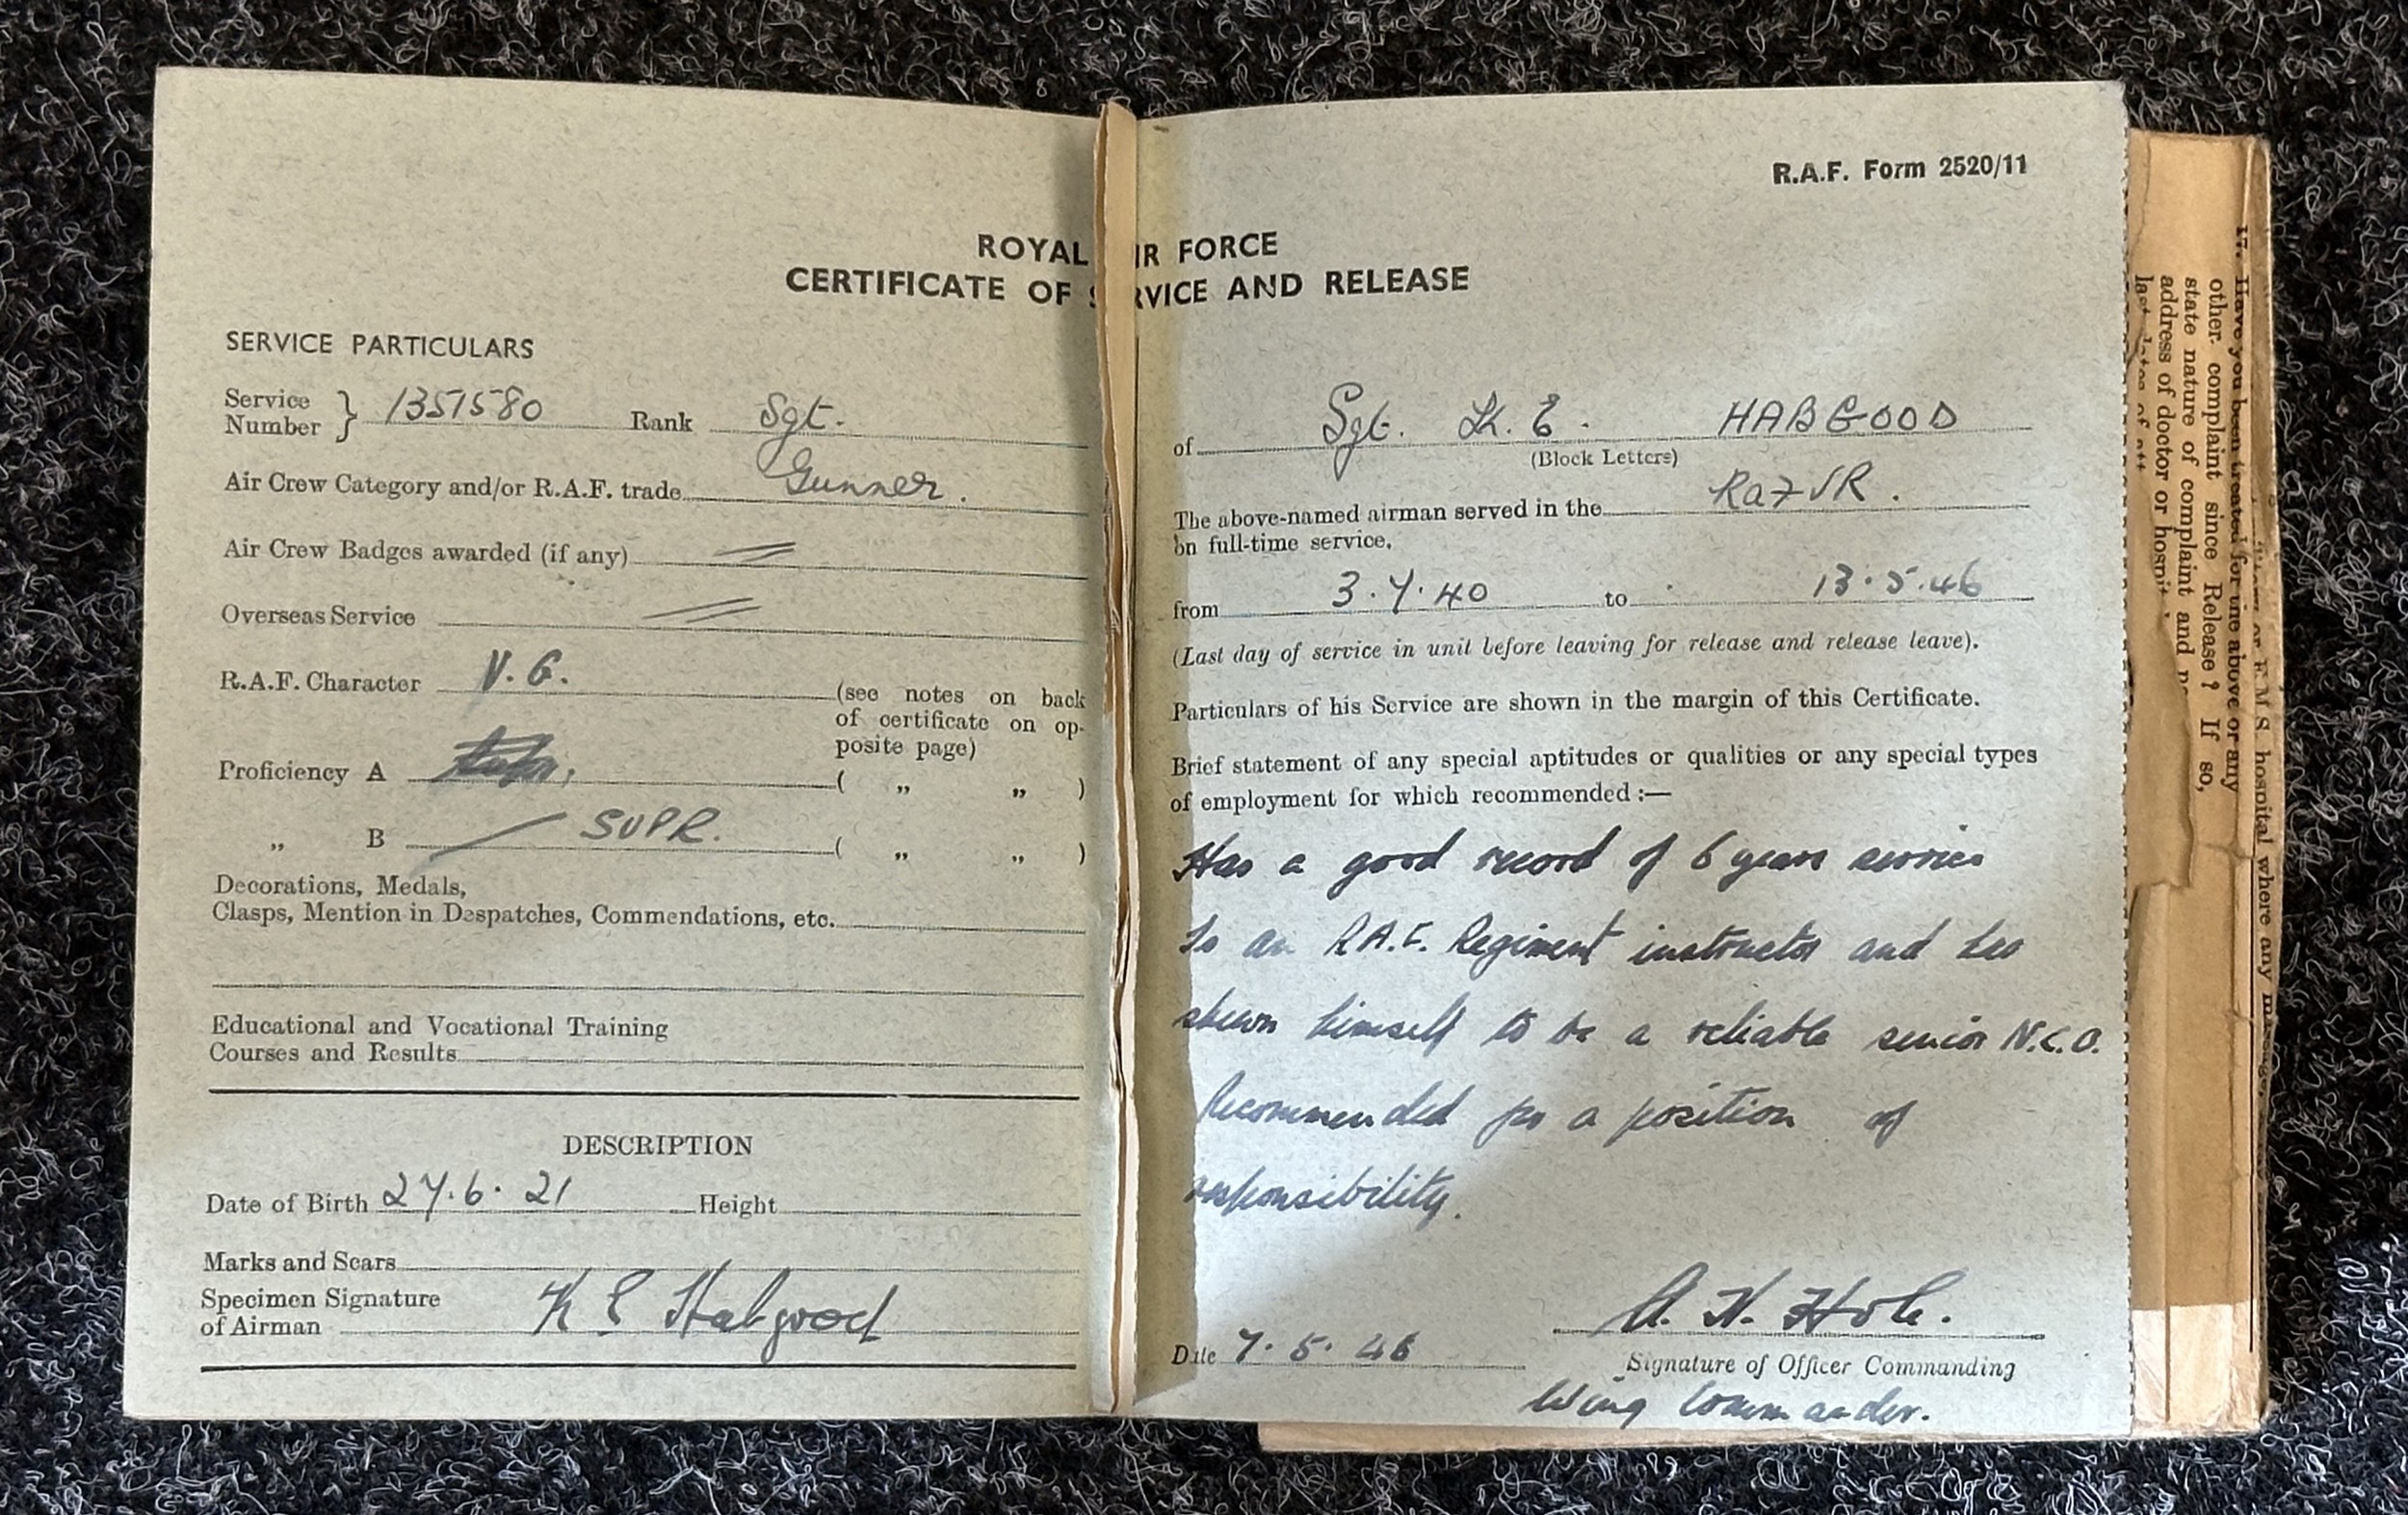 R.A.F. Form 2520/11
ROYAL IR FORCE
CERTIFICATE OF S RVICE AND RELEASE
SERVICE PARTICULARS
Service Number } 1351580 Rank Sgt.
Air Crew Category and/or R.A.F. trade Gunner.
Air Crew Badges awarded (if any)
Overseas Service
R.A.F. Character V.G. (see notes on back
of certificate on op-
posite page)
Proficiency A ( „ „ )
„ B SUPR. ( „ „ )
Decorations, Medals,
Clasps, Mention in Despatches, Commendations, etc.
Educational and Vocational Training
Courses and Results
DESCRIPTION
Date of Birth 27.6.21 Height
Marks and Scars
Specimen Signature
of Airman K E Habgood
of Sgt. K. E. HABGOOD
(Block Letters)
The above-named airman served in the RAFVR.
on full-time service,
from 3.7.40 to 13.5.46
(Last day of service in unit before leaving for release and release leave).
Particulars of his Service are shown in the margin of this Certificate.
Brief statement of any special aptitudes or qualities or any special types
of employment for which recommended :—
Has a good record of 6 years service
as an R.A.F. Regiment instructor and has
shewn himself to be a reliable senior N.C.O.
Recommended for a position of
responsibility.
A. H. Hole.
Date 7.5.46
Signature of Officer Commanding
Wing Commander.
17. Have you been treated for the above or any
other complaint since Release ? If so,
state nature of complaint and
address of doctor or hospit
hospital where any